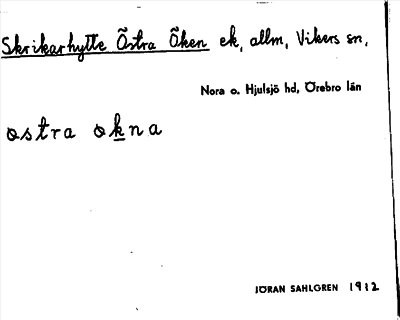 Skrikarhytte Östra Öken ek, allm, Vikers sn,
Nora o. Hjulsjö hd, Örebro län
ostra okna
JÖRAN SAHLGREN 1912